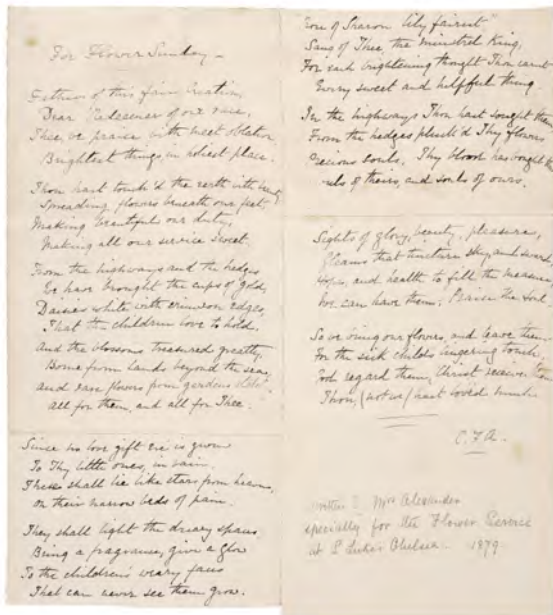 For Flower Sunday –
Father of this fair creation,
Dear Redeemer of our race,
Thee, we praise with meet oblation
Brightest things, in holiest place.
Thou hast touch'd the earth with beauty
Spreading flowers beneath our feet
Making beautiful our duty,
Making all our service sweet.
From the highways and the hedges
We have brought the cups of gold,
Daisies white with crimson edges,
That the children love to hold.
And the blossoms treasured greatly,
Borne from lands beyond the sea,
and rare flowers from gardens
all for them, and all for Thee.
Since no love gift e'er is given
To Thy little ones, in vain.
These shall lie like stars from heaven,
on their narrow beds of pain.
They shall light the dreary spaces,
Being a fragrance, give a glow
To the children's weary faces
That can never see them grow.
of Sharon lily fairest"
Sang of Thee, the minstrel King,
For each brightening thought Thou
Every sweet and helpful thing.
In the highways Thou hast sought them
From the hedges pluck'd Thy flowers
Precious souls, Thy blood has bought
souls of theirs, and souls of ours.
Sights of glory, beauty, pleasure,
Gleams that tincture sky and sward,
Hope, and health to fill the measure,
We can have them: Praise the Lord.
So we bring our flowers, and leave them
For the sick child's lingering touch,
God regard them, Christ receive
Thou, (not we) hast loved
C.F.A.
written by Mrs Alexander
specially for the Flower Service
at S. Luke's Chelsea – 1879